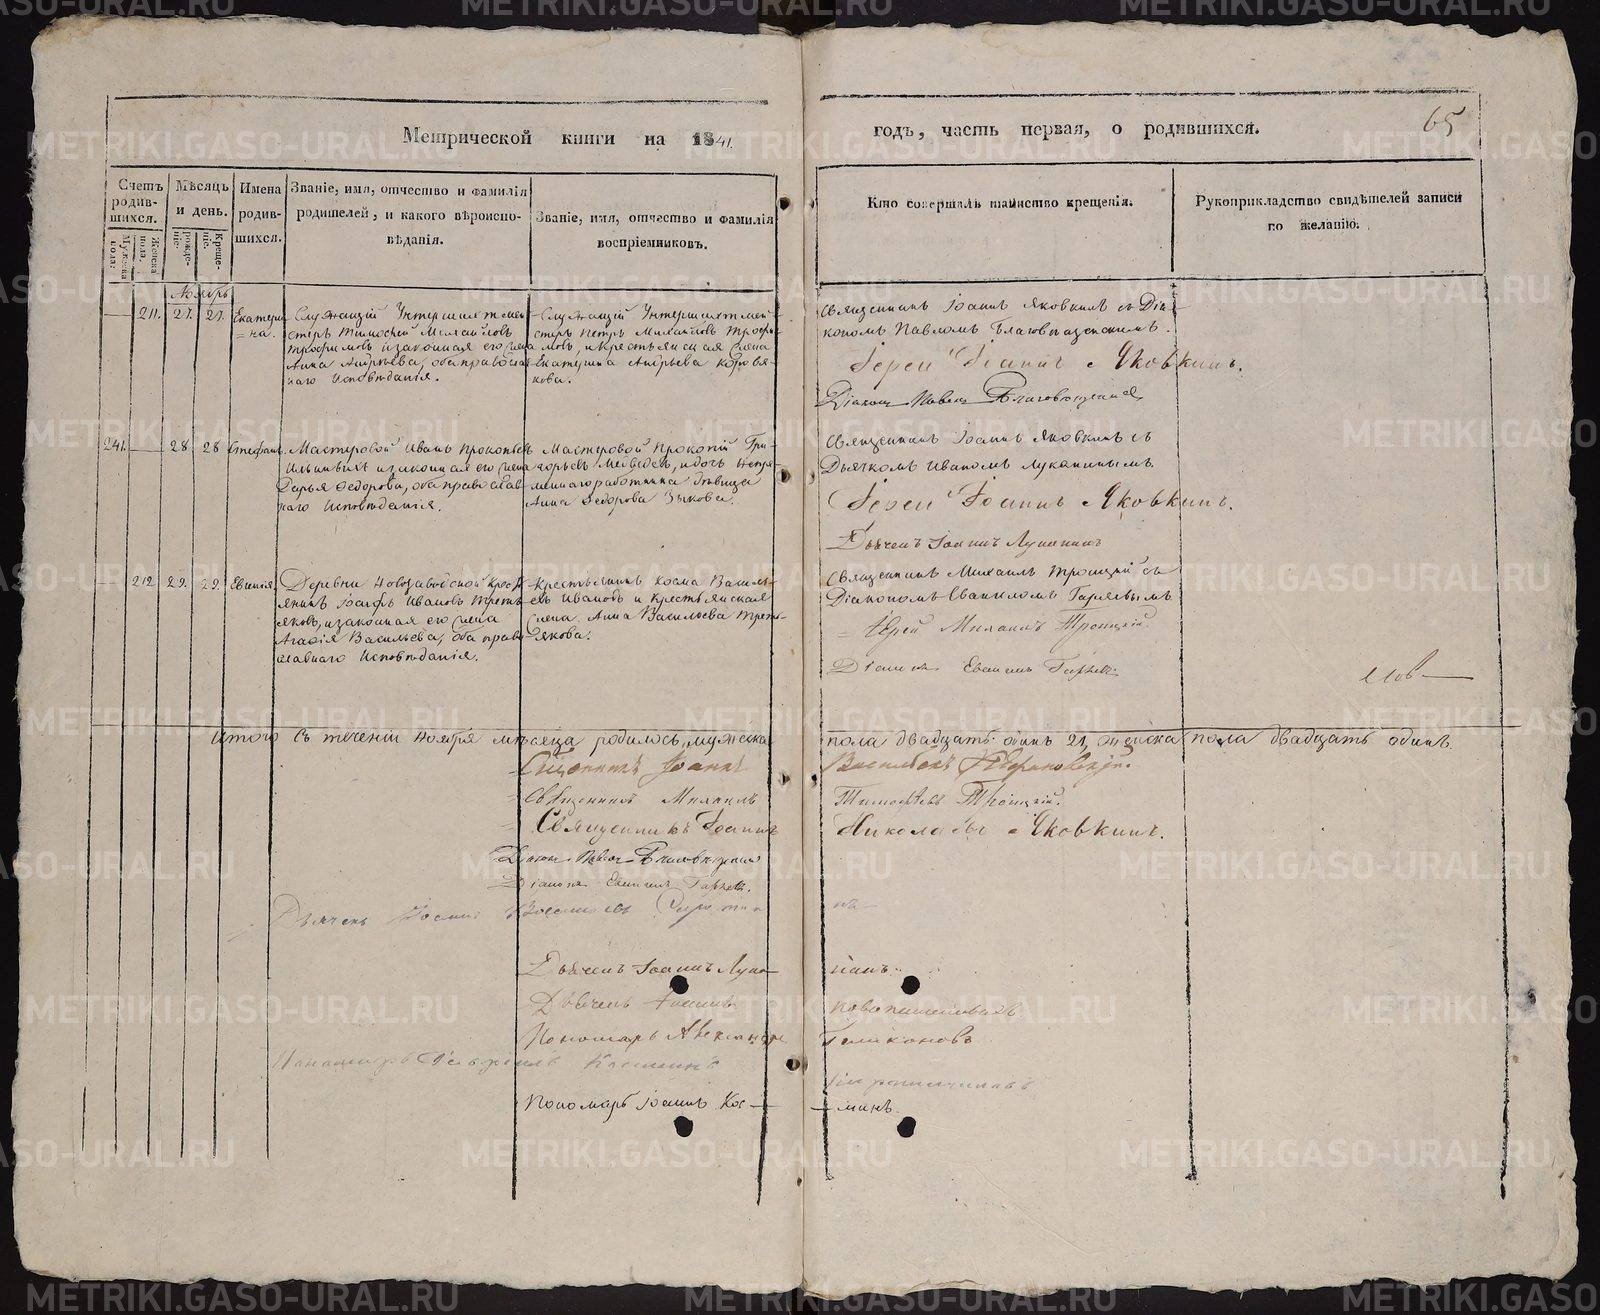 Метрической книги на 1841.
годъ, часть первая, о родившихся.
65
Счетъ родив-шихся.
Мужеска пола.
Женска пола.
Мѣсяцъ и день.
рожде-ніе.
Креще-ніе.
Имена родив-шихся.
Званіе, имя, отчество и фамилія
родителей, и какого вѣроиспо-
вѣданія.
Званіе, имя, отчество и фамилія
воспріемниковъ.
Кто совершалъ таинство крещенія.
Рукоприкладство свидѣтелей записи
по желанію.
Ноябрь
211. 27. 27. Екатери-
на.
Служащій Унтершихтмей-
стеръ Тимофей Михайловъ
Трофимовъ и законная его жена
Анна Андрѣева, оба православ-
наго исповѣданія.
Служащій Унтершихтмей-
стеръ Петръ Михайловъ Трофи-
мовъ, и крестьянская жена
Екатерина Андрѣева Коровя-
кова.
Священникъ Іоаннъ Яковкинъ съ Діа-
кономъ Павломъ Благовѣщенскимъ.
Іерей Іоаннъ Яковкинъ.
Діаконъ Павелъ Благовѣщенскій
241. 28 28 Стефанъ.
Мастеровой Иванъ Прокопьевъ
и законная его жена
Дарья Федорова, оба православ-
наго исповѣданія.
Мастеровой Прокопій Гри-
горьевъ Медведевъ, и дочь непре-
меннаго работника девица
Анна Федорова Зыкова.
Священникъ Іоаннъ Яковкинъ съ
Дьячкомъ Иваномъ Луканинымъ.
Іерей Іоаннъ Яковкинъ.
Дьячекъ Іоаннъ Луканинъ
212 29. 29. Евгенія.
Деревни Новозаводской крест-
янинъ Іосифъ Ивановъ Треть-
яковъ, и законная его жена
Агафія Васильева, оба право-
славнаго исповѣданія.
Крестьянинъ Косма Василь-
евъ Ивановъ и крестьянская
жена Анна Васильева Треть-
якова.
Священникъ Михаилъ Троицкій съ
Діакономъ Евгениломъ Гаряевымъ
Іерей Михаилъ Троицкій
Діаконъ
Итого въ теченіи Ноября мѣсяца родилось мужеска
пола двадцать одинъ 21, женска пола двадцать одинъ.
Священникъ Іоаннъ Васильевъ
Священникъ Михаилъ Тимофѣевъ Троицкій.
Священникъ Іоаннъ Николаевъ Яковкинъ.
Діаконъ Павелъ Благовѣщенскій
Діаконъ
Дьячекъ Іоаннъ Васильевъ
Дьячекъ Іоаннъ Лука-нинъ.
Дьячекъ Іоаннъ
Пономарь Александръ
Пономарь
Пономарь Іоаннъ Кос-минъ.
METRIKI.GASO-URAL.RU